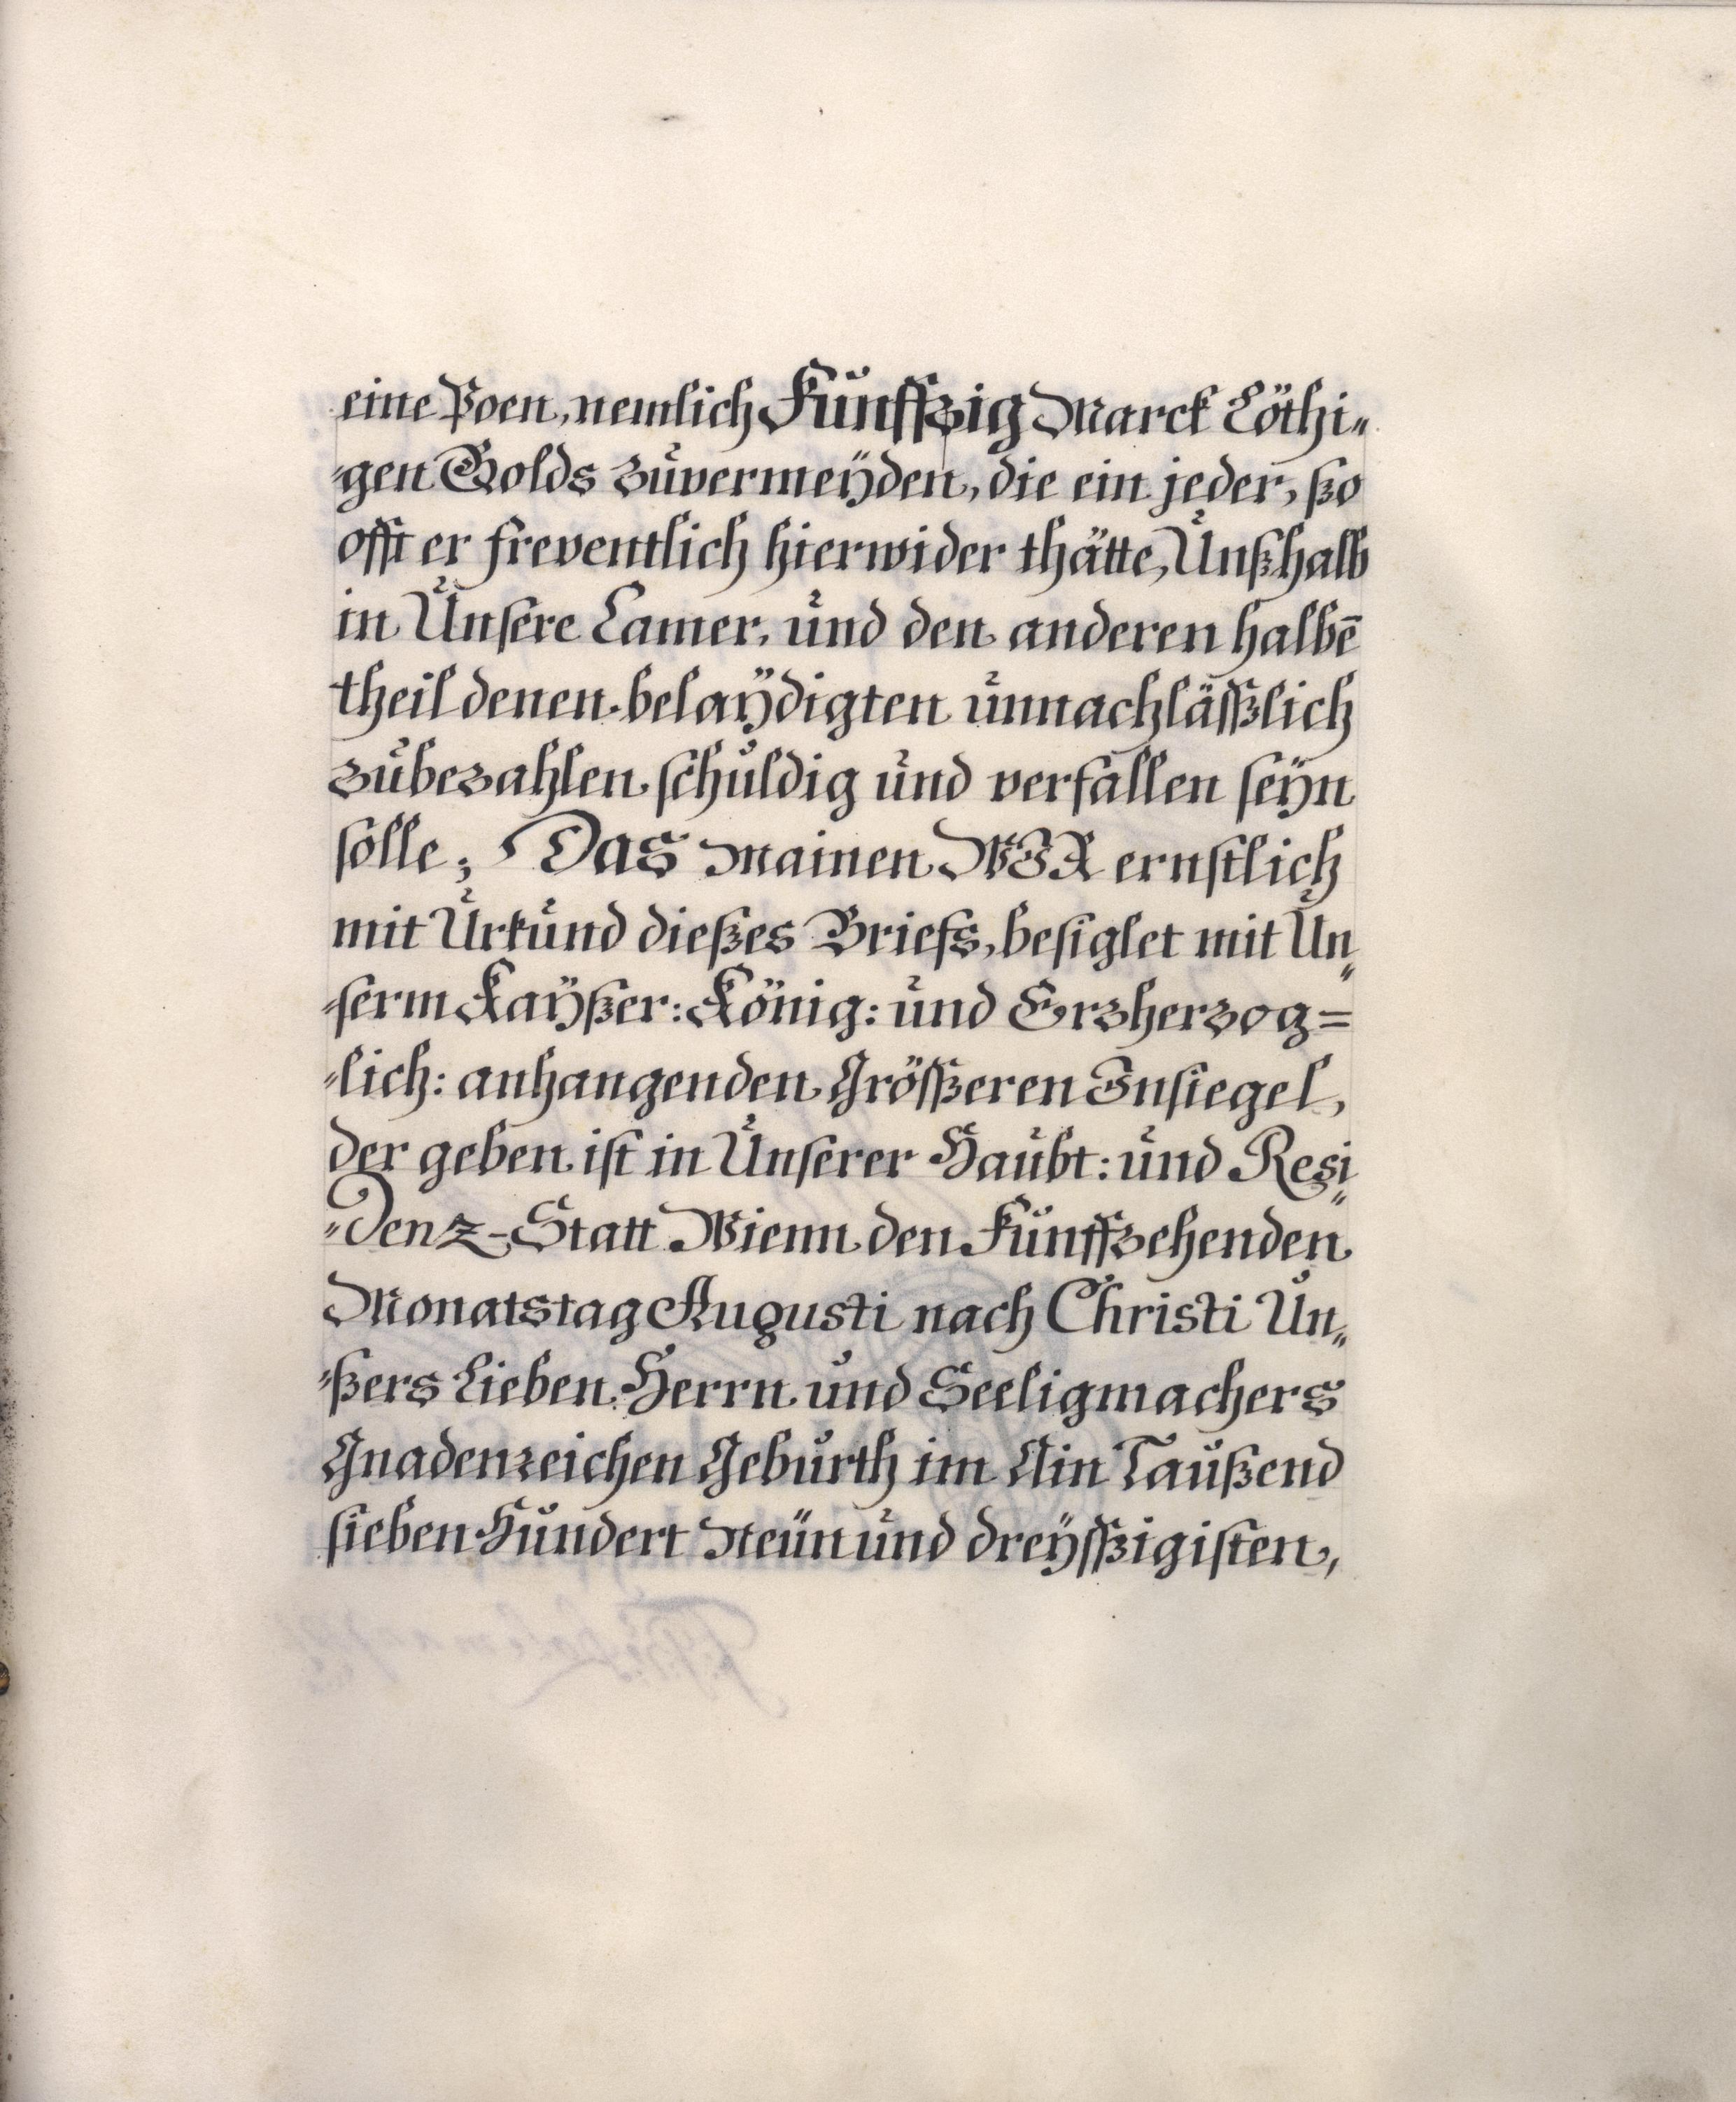 eine Poen, nemlich Fünffzig Marck Löthi„
„gen Golds zuvermeÿden, die ein jeder, ßo
offt er freventlich hierwider thätte, Unß halb
in Unsere Camer, und den anderen halbē
theil denen belaÿdigten unnachläßlich
zubezahlen schuldig und verfallen seÿn
solle; Das mainen WIR ernstlich
mit Urkund dießes Briefs, besiglet mit Un„
„serm Kaÿßer: König: und Erzherzog=
„lich: anhangenden Größeren Insiegel,
der geben ist in Unserer Haubt: und Resi„
„denz-Statt Wienn den Fünffzehenden
Monatstag Augusti nach Christi Un„
„ßers Lieben Herrn und Seeligmachers
Gnadenreichen Geburth im Ain Taußend
sieben Hundert Neün und dreÿßigisten,